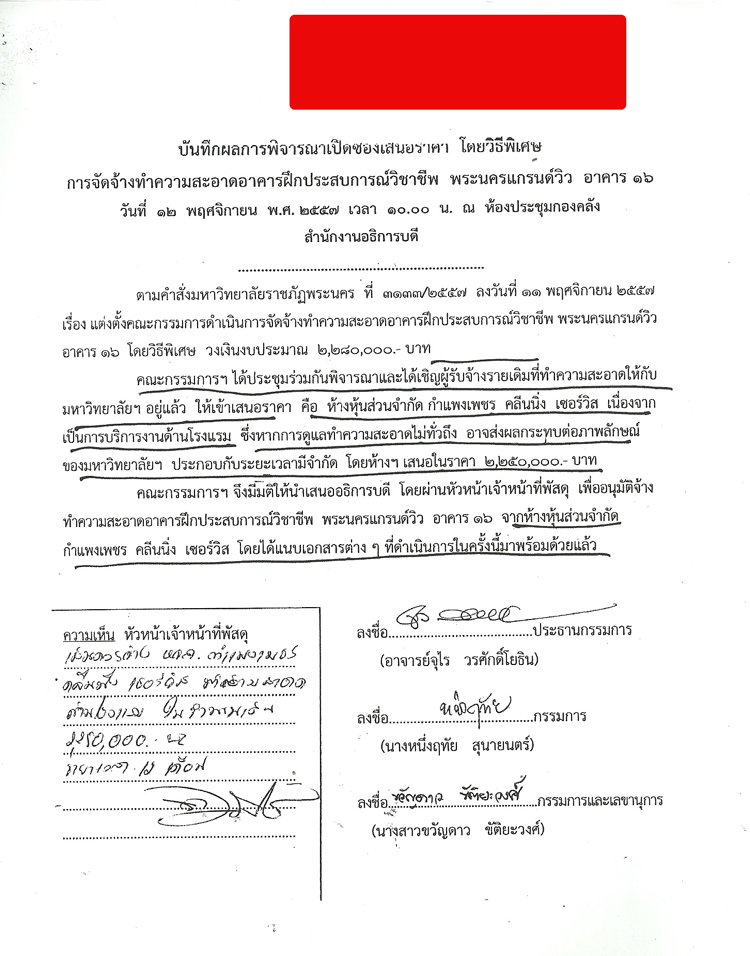 บันทึกผลการพิจารณาเปิดซองเสนอราคา โดยวิธีพิเศษ
การจัดจ้างทำความสะอาดอาคารฝึกประสบการณ์วิชาชีพ พระนครแกรนด์วิว อาคาร ๑๖
วันที่ ๑๒ พฤศจิกายน พ.ศ. ๒๕๕๗ เวลา ๑๐.๐๐ น. ณ ห้องประชุมกองคลัง
สำนักงานอธิการบดี
ตามคำสั่งมหาวิทยาลัยราชภัฏพระนคร ที่ ๓๑๓๓/๒๕๕๗ ลงวันที่ ๑๑ พฤศจิกายน ๒๕๕๗
เรื่อง แต่งตั้งคณะกรรมการดำเนินการจัดจ้างทำความสะอาดอาคารฝึกประสบการณ์วิชาชีพ พระนครแกรนด์วิว
อาคาร ๑๖ โดยวิธีพิเศษ วงเงินงบประมาณ ๒,๒๘๐,๐๐๐.- บาท
คณะกรรมการฯ ได้ประชุมร่วมกันพิจารณาและได้เชิญผู้รับจ้างรายเดิมที่ทำความสะอาดให้กับ
มหาวิทยาลัยฯ อยู่แล้ว ให้เข้าเสนอราคา คือ ห้างหุ้นส่วนจำกัด กำแพงเพชร คลีนนิ่ง เซอร์วิส เนื่องจาก
เป็นการบริการงานด้านโรงแรม ซึ่งหากการดูแลทำความสะอาดไม่ทั่วถึง อาจส่งผลกระทบต่อภาพลักษณ์
ของมหาวิทยาลัยฯ ประกอบกับระยะเวลามีจำกัด โดยห้างฯ เสนอในราคา ๒,๒๕๐,๐๐๐.- บาท
คณะกรรมการฯ จึงมีมติให้นำเสนออธิการบดี โดยผ่านหัวหน้าเจ้าหน้าที่พัสดุ เพื่ออนุมัติจ้าง
ทำความสะอาดอาคารฝึกประสบการณ์วิชาชีพ พระนครแกรนด์วิว อาคาร ๑๖ จากห้างหุ้นส่วนจำกัด
กำแพงเพชร คลีนนิ่ง เซอร์วิส โดยได้แนบเอกสารต่าง ๆ ที่ดำเนินการในครั้งนี้มาพร้อมด้วยแล้ว
ความเห็น หัวหน้าเจ้าหน้าที่พัสดุ
กำแพงเพชร
คลีนนิ่ง เซอร์วิส ทำความสะอาด
เป็นจำนวนเงิน
ลงชื่อ ประธานกรรมการ
(อาจารย์จุไร วรศักดิ์โยธิน)
ลงชื่อ หนึ่งฤทัย กรรมการ
(นางหนึ่งฤทัย สุนายนตร์)
ลงชื่อ ขวัญดาว ขัติยะวงศ์ กรรมการและเลขานุการ
(นางสาวขวัญดาว ขัติยะวงศ์)